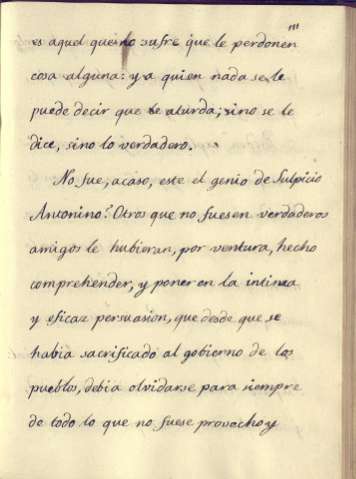 es aquel que no sufre que le perdonen
cosa alguna: y a quien nada se le
puede decir que le aturda, sino se le
dice, sino lo verdadero.
No fue, acaso, este el genio de Sulpicio
Antonino? Otros que no fuesen verdaderos
amigos le hubieran, por ventura, hecho
comprehender, y poner en la intima
y eficaz persuasion, que desde que se
habia sacrificado al gobierno de los
pueblos, debia olvidarse para siempre
de todo lo que no fuese provecho y